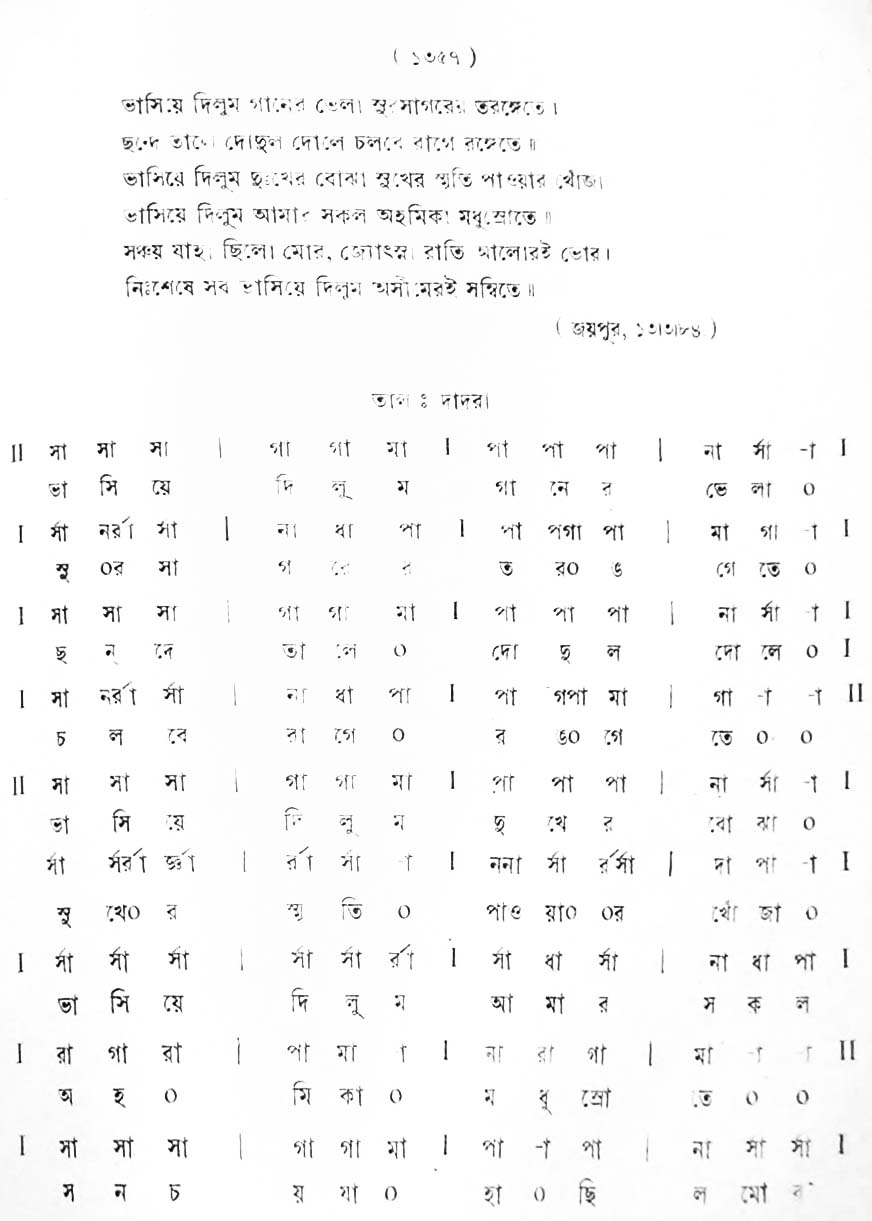 ( ১৩৫৭ )
ভাসিয়ে দিলুম গানের ভেলা সুরসাগরের তরঙ্গেতে।
ছন্দে তালে দোদুল দোলে চলবে রাগে রঙ্গেতে॥
ভাসিয়ে দিলুম দুঃখের বোঝা সুখের স্মৃতি পাওয়ার খোঁজা
ভাসিয়ে দিলুম আমার সকল অহমিকা মধুস্রোতে॥
সঞ্চয় যাহা ছিলো মোর, জ্যোৎস্না রাতি আলোরই ভোর।
নিঃশেষে সব ভাসিয়ে দিলুম অসীমেরই সম্বিতে॥
( জয়পুর, ১৩।৩।৮৪ )
তাল ঃ দাদরা
II সা সা সা | গা গা মা I পা পা পা | না র্সা -া I
ভা সি য়ে দি লু ম গা নে র ভে লা ০
I র্সা নর্রা র্সা | না ধা পা I পা পগা পা | মা গা -া I
সু ০র সা গ রে র ত র০ ঙ গে তে ০
I সা সা সা | গা গা মা I পা পা পা | না র্সা -া I
ছ ন্ দে তা লে ০ দো দু ল দো লে ০ I
I র্সা নর্রা র্সা | না ধা পা I পা গপা মা | গা -া -া II
চ ল বে রা গে ০ র ঙ০ গে তে ০ ০
II সা সা সা | গা গা মা I পা পা পা | না র্সা -া I
ভা সি য়ে দি লু ম দু খে র বো ঝা ০
র্সা র্সর্রা র্জ্ঞা | র্রা র্সা -া I ননা র্সা র্রর্সা | দা পা -া I
সু খে০ র স্মৃ তি ০ পাও য়া০ ০র খোঁ জা ০
I র্সা র্সা র্সা | র্সা র্সা র্রা I র্সা ধা র্সা | না ধা পা I
ভা সি য়ে দি লু ম আ মা র স ক ল
I রা গা রা | পা মা -া I না রা গা | মা -া -া II
অ হ ০ মি কা ০ ম ধু স্রো তে ০ ০
I সা সা সা | গা গা মা I পা -া পা | না র্সা র্সা I
স ন চ য় যা ০ হা ০ ছি ল মো র